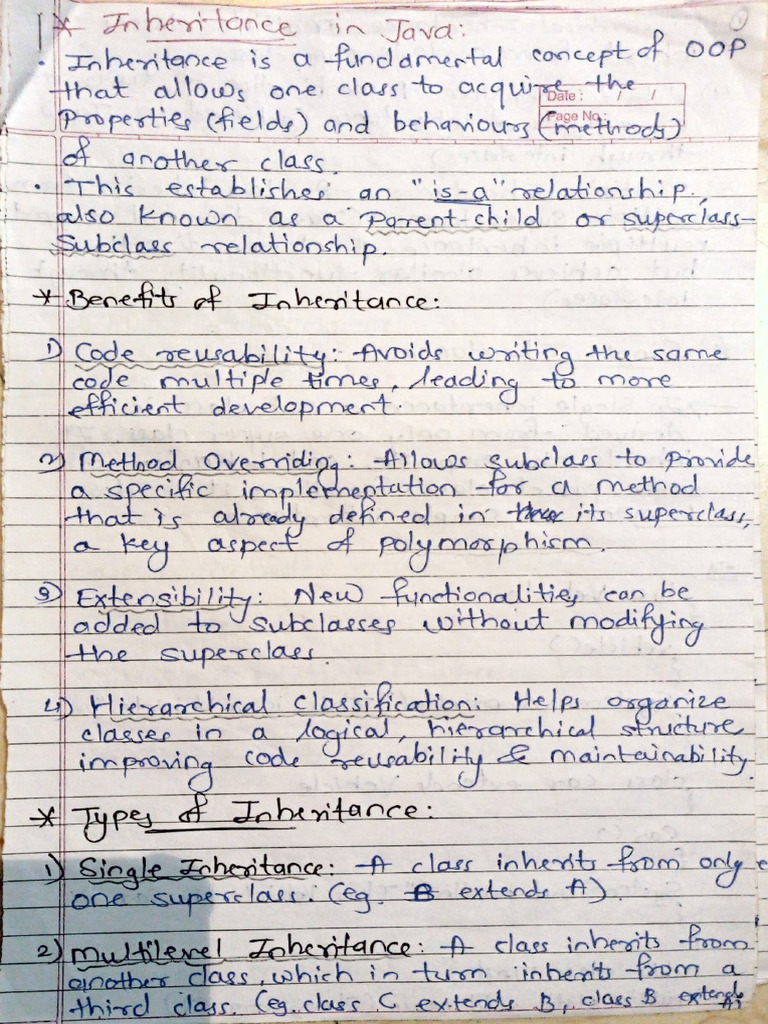 * Inheritance in Java:
• Inheritance is a fundamental concept of OOP
that allows one class to acquire the
Date : / /
Properties (fields) and behaviours (methods)
Page No :
of another class.
• This establishes an "is-a" relationship,
also known as a Parent-child or superclass-
Subclass relationship.
* Benefits of Inheritance:
1) Code reusability: Avoids writing the same
code multiple times, leading to more
efficient development.
2) Method Overriding: Allows subclass to provide
a specific implementation for a method
that is already defined in its superclass,
a key aspect of polymorphism.
3) Extensibility: New functionalities can be
added to subclasses without modifying
the superclass.
4) Hierarchical Classification: Helps organize
classes in a logical, hierarchical structure,
improving code reusability & maintainability.
* Types of Inheritance:
1) Single Inheritance: A class inherits from only
one superclass. (eg. B extends A).
2) Multilevel Inheritance: A class inherits from
another class, which in turn inherits from a
third class. (eg. class C extends B, class B extends A)